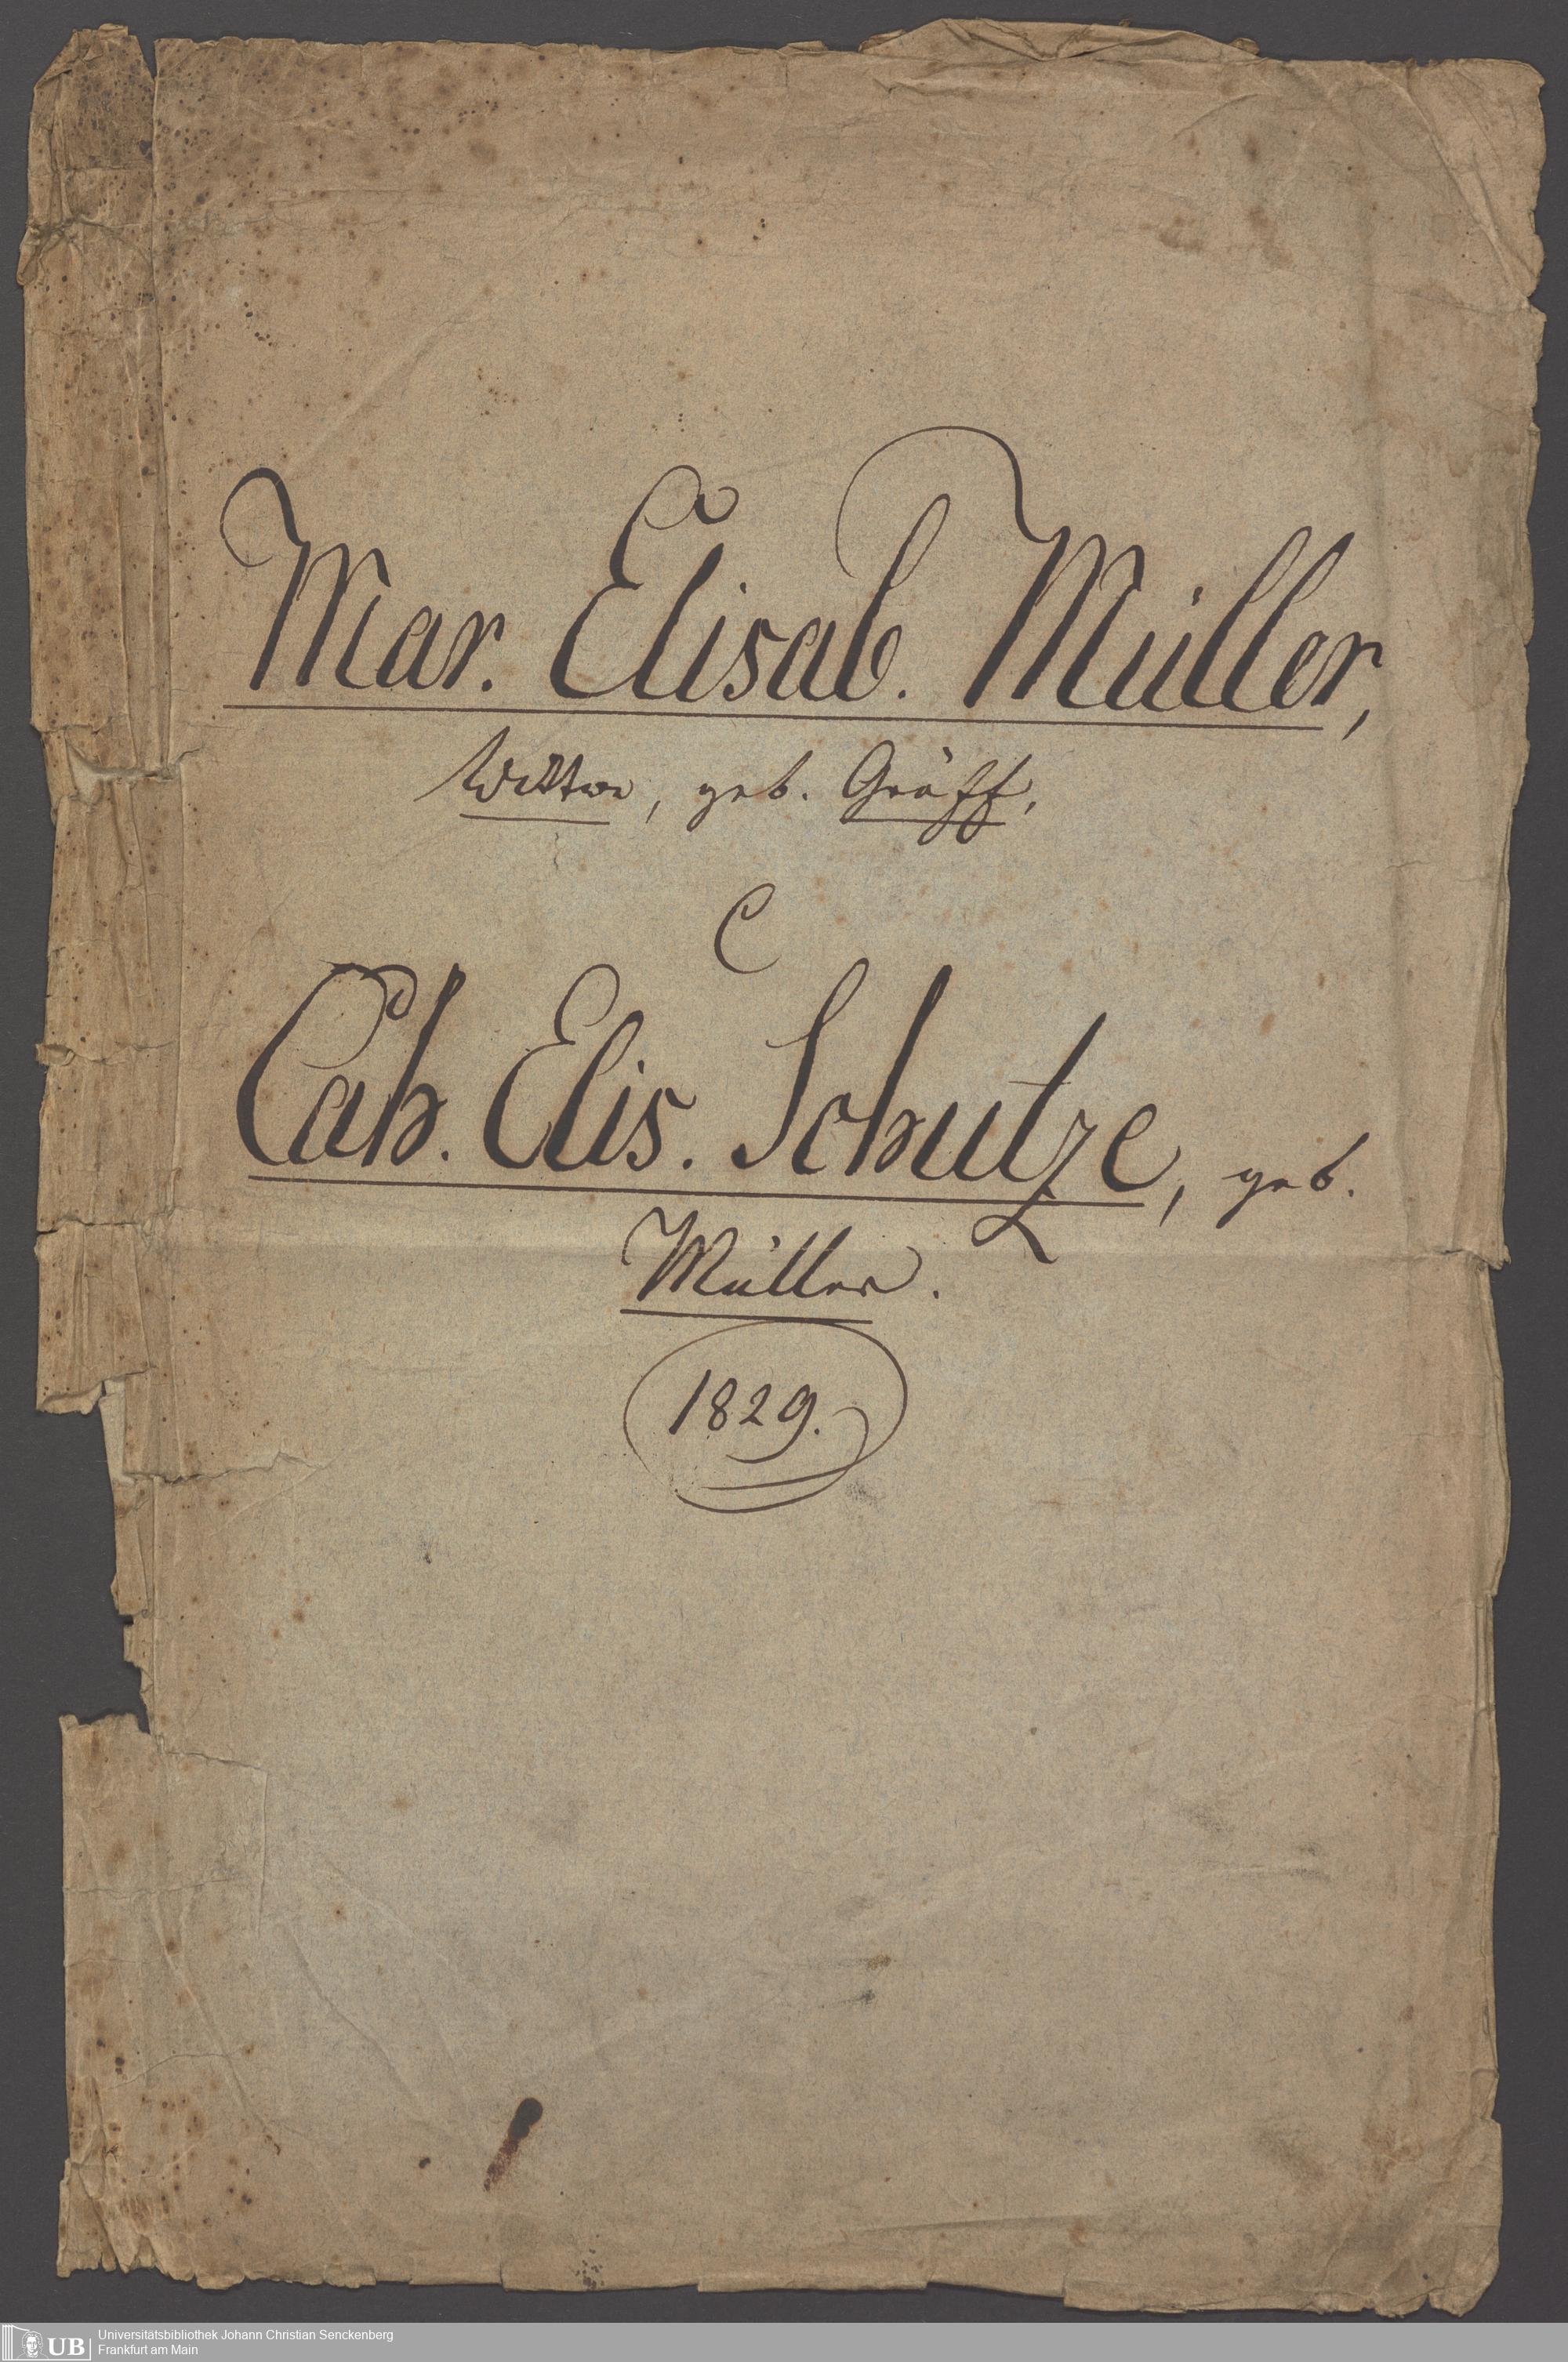 Mar. Elisab. Müller,
Wittwe, geb. Gräff,
C
Cath. Elis. Schutze, geb.
Müller.
1829.
UB Universitätsbibliothek Johann Christian Senckenberg
Frankfurt am Main